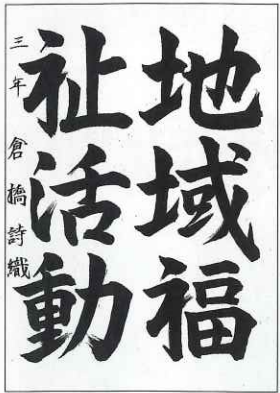 地域福
祉活動
三年 倉橋詩織